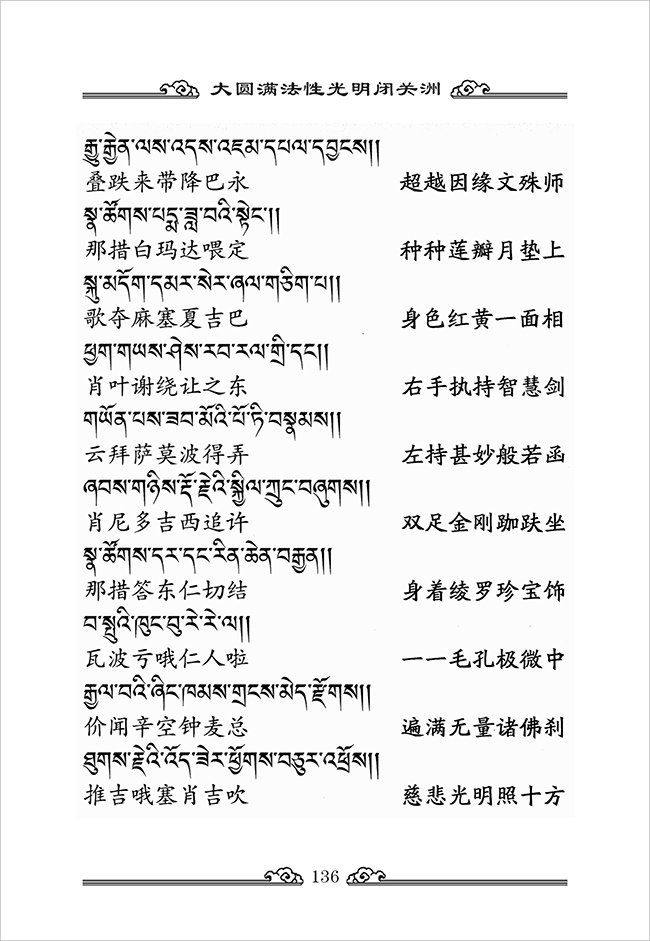 大圆满法性光明闭关洲
རྒྱུ་རྐྱེན་ལས་འདས་འཇམ་དཔལ་དབྱངས།།
叠跌来带降巴永 超越因缘文殊师
སྣ་ཚོགས་པདྨ་ཟླ་བའི་སྟེང་།།
那措白玛达喂定 种种莲瓣月垫上
སྐུ་མདོག་དམར་སེར་ཞལ་གཅིག་པ།།
歌夺麻塞夏吉巴 身色红黄一面相
ཕྱག་གཡས་ཤེས་རབ་རལ་གྲི་དང།།
肖叶谢绕让之东 右手执持智慧剑
གཡོན་པས་ཟབ་མོའི་པོ་ཏི་བསྣམས།།
云拜萨莫波得弄 左持甚妙般若函
ཞབས་གཉིས་རྡོ་རྗེའི་སྐྱིལ་ཀྲུང་བཞུགས།།
肖尼多吉西追许 双足金刚跏趺坐
སྣ་ཚོགས་དར་དང་རིན་ཆེན་བརྒྱན།།
那措答东仁切结 身着绫罗珍宝饰
བ་སྤུའི་ཁུང་བུ་རེ་རེ་ལ།།
瓦波亏哦仁人啦 一一毛孔极微中
རྒྱལ་བའི་ཞིང་ཁམས་གྲངས་མེད་རྫོགས།།
价闻辛空钟麦总 遍满无量诸佛刹
ཐུགས་རྗེའི་འོད་ཟེར་ཕྱོགས་བཅུར་འཕྲོས།།
推吉哦塞肖吉吹 慈悲光明照十方
136